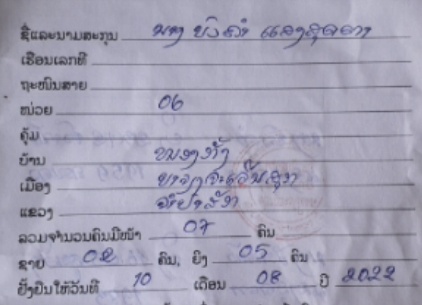 ຊື່ແລະນາມສະກຸນ ນາງ ບົວຄຳ ແສງສຸດຕາ
ເຮືອນເລກທີ
ຖະໜົນສາຍ
ໜ່ວຍ 06
ຄຸ້ມ
ບ້ານ
ເມືອງ ບາຈຽງຈະເລີນສຸກ
ແຂວງ ຈຳປາສັກ
ລວມຈຳນວນຄົນມີໜ້າ 07 ຄົນ
ຊາຍ 02 ຄົນ, ຍິງ 05 ຄົນ
ຢັ້ງຢືນໃຫ້ວັນທີ 10 ເດືອນ 08 ປີ 2022